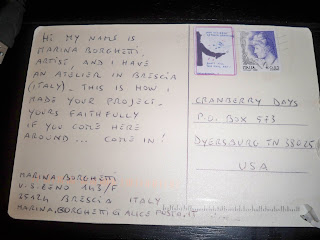 Hi MY NAME IS
MARINA BORGHETTI,
ARTIST, AND I HAVE
AN ATELIER IN BRESCIA
(ITALY). THIS IS HOW I
MADE YOUR PROJECT.
YOURS FAITHFULLY
IF YOU COME HERE
AROUND... COME IN!
MARINA BORGHETTI
25124 BRESCIA ITALY
CRANBERRY DAYS
P.O. BOX 573
DYERSBURG TN 38025
USA
ITALIA